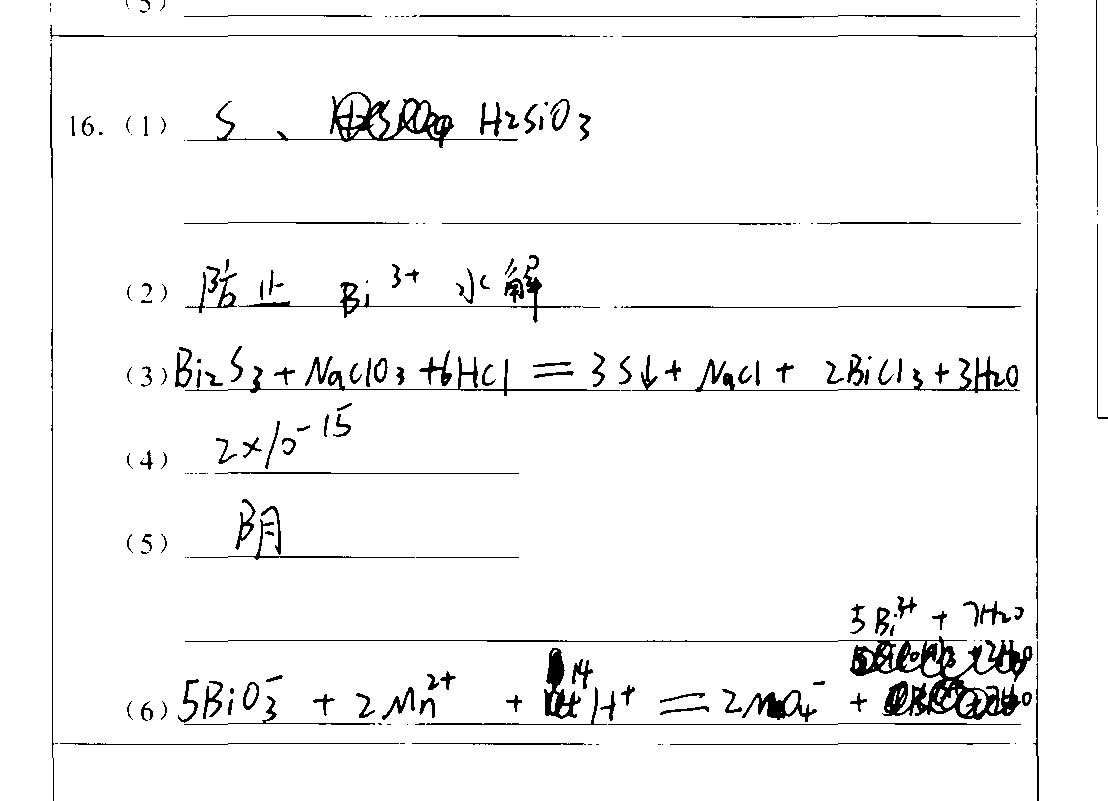 (5)
16. (1) S、 H2SiO3
(2) 防止 Bi³⁺ 水解
(3) Bi2S3 + NaClO3 + 6HCl = 3S↓ + NaCl + 2BiCl3 + 3H2O
(4) 2×10⁻¹⁵
(5) 阴
5Bi³⁺ + 7H2O
(6) 5BiO3⁻ + 2Mn²⁺ + 14H⁺ = 2MnO4⁻ +